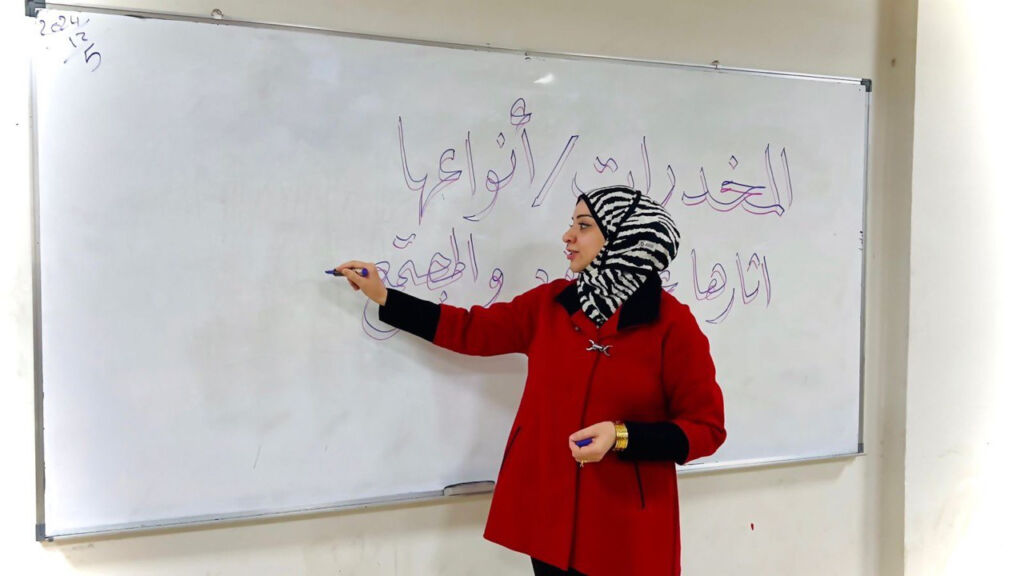 2024/
12/5
المخدرات/أنواعها
اثارها و المجتمع